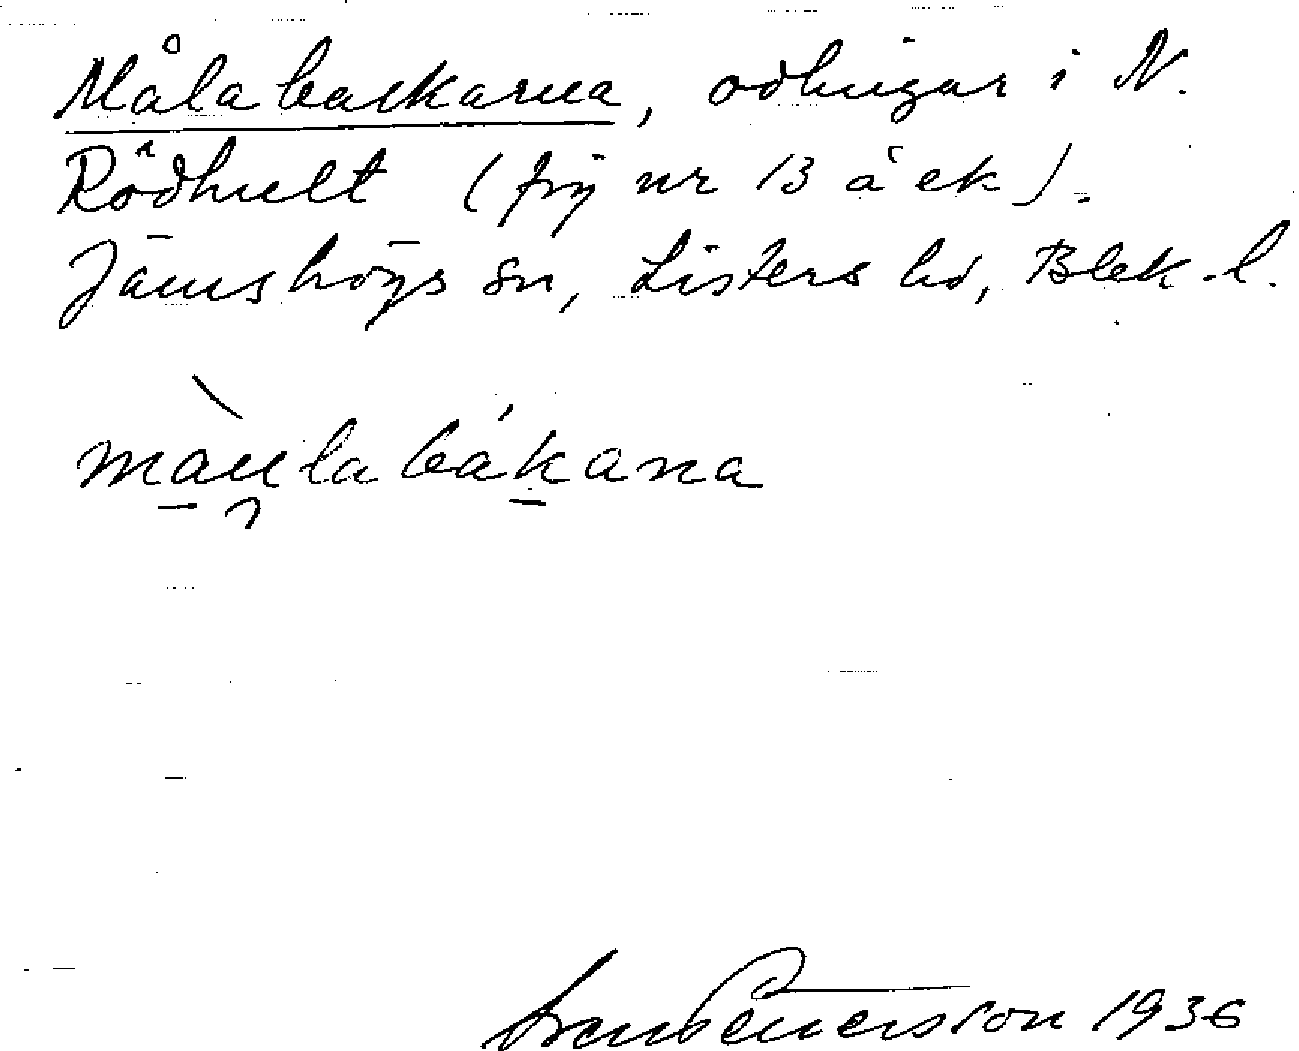 Målabackarna, odlingar i N.
Rödhult (fig nr 13 å ek).
Jämshögs sn, Listers hd, Blek. l.
mau̯labákana
Sven Benersson 1936